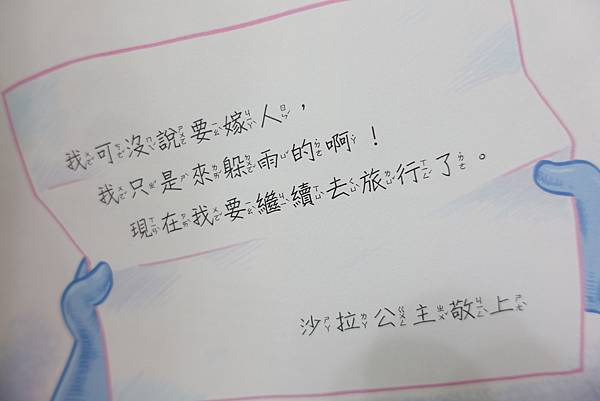 我可沒說要嫁人，
我只是來躲雨的啊！
現在我要繼續去旅行了。
沙拉公主敬上